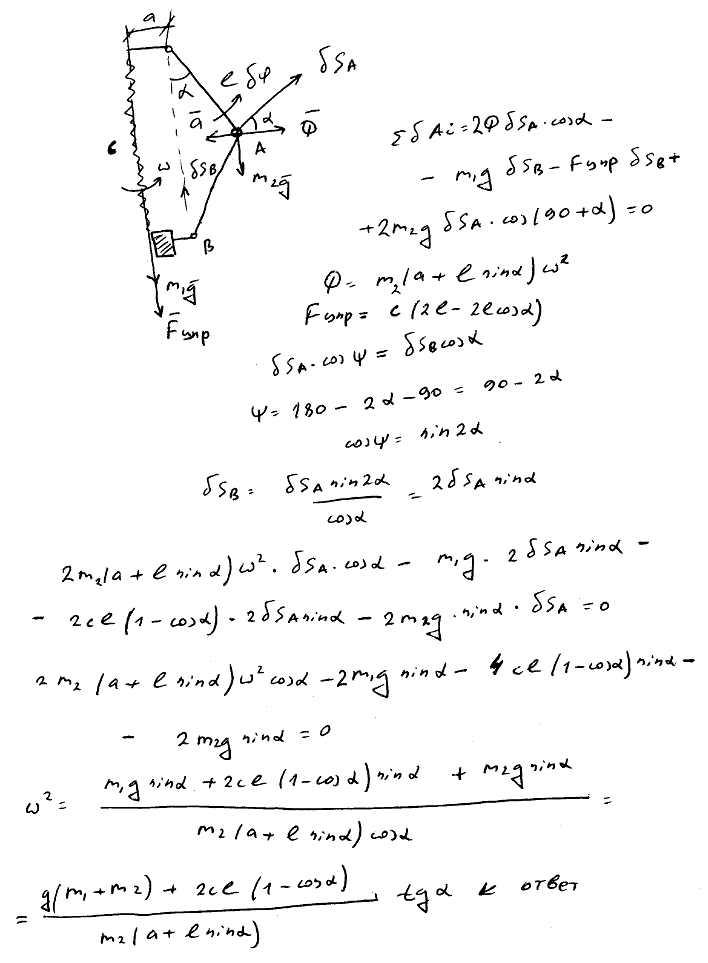 a
α
l δφ
δS_A
ā
α
Φ̄
A
c
ω
δS_B
m₂ḡ
B
m₁ḡ
F̄упр
Σ δAi = 2Φ δS_A · cosα –
– m₁g δS_B – Fупр δS_B +
+ 2m₂g δS_A · cos(90+α) = 0
Φ = m₂(a + l sinα)ω²
Fупр = c(2l – 2l cosα)
δS_A · cosψ = δS_B cosα
ψ = 180 – 2α – 90 = 90 – 2α
cosψ = sin2α
δS_B = δS_A sin2α / cosα = 2δS_A sinα
2m₂(a + l sinα)ω² · δS_A · cosα – m₁g · 2δS_A sinα –
– 2cl(1 – cosα) · 2δS_A sinα – 2m₂g · sinα · δS_A = 0
2m₂(a + l sinα)ω² cosα – 2m₁g sinα – 4cl(1 – cosα) sinα –
– 2m₂g sinα = 0
ω² = m₁g sinα + 2cl(1 – cosα) sinα + m₂g sinα / m₂(a + l sinα) cosα =
= g(m₁ + m₂) + 2cl(1 – cosα) / m₂(a + l sinα) · tgα ← ответ